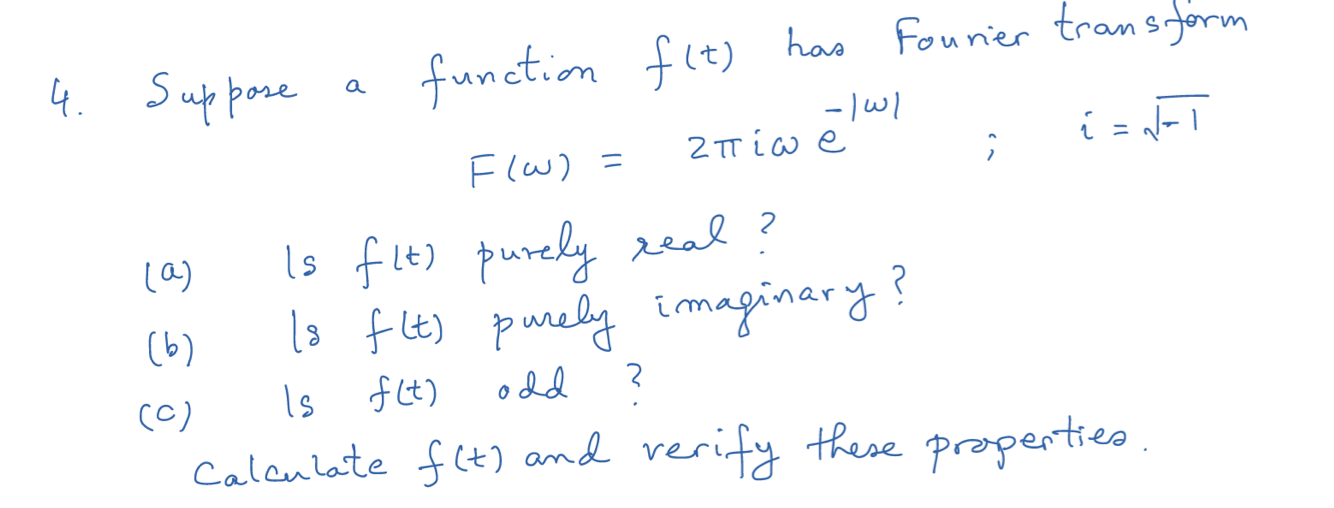 4. Suppose a function f(t) has Fourier transform
F(ω) = 2πiω e^{-|ω|} ; i = √-1
(a) Is f(t) purely real ?
(b) Is f(t) purely imaginary ?
(c) Is f(t) odd ?
Calculate f(t) and verify these properties.